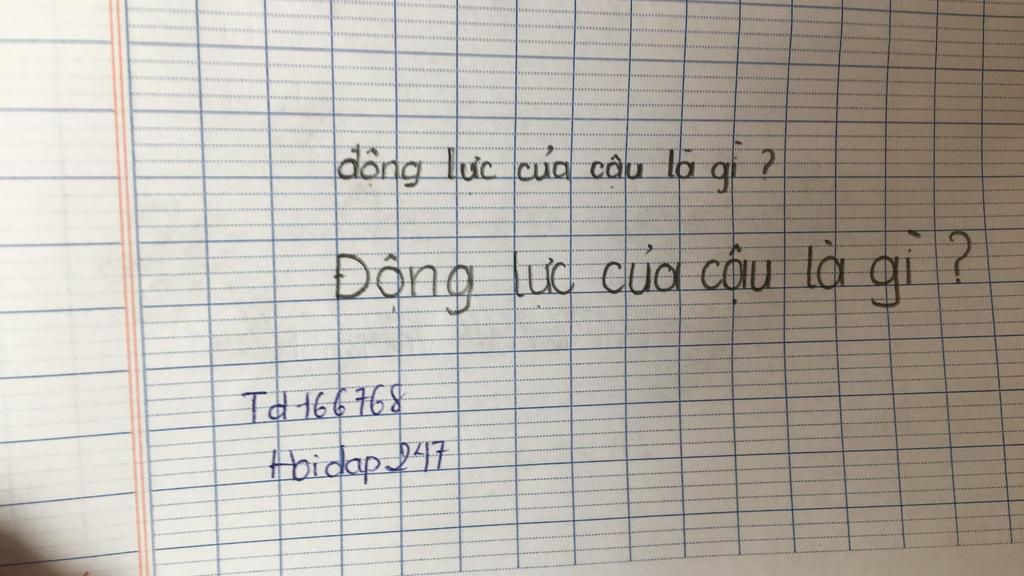 động lực của cậu là gì ?
Động lực của cậu là gì ?
Td166768
Hoidap247